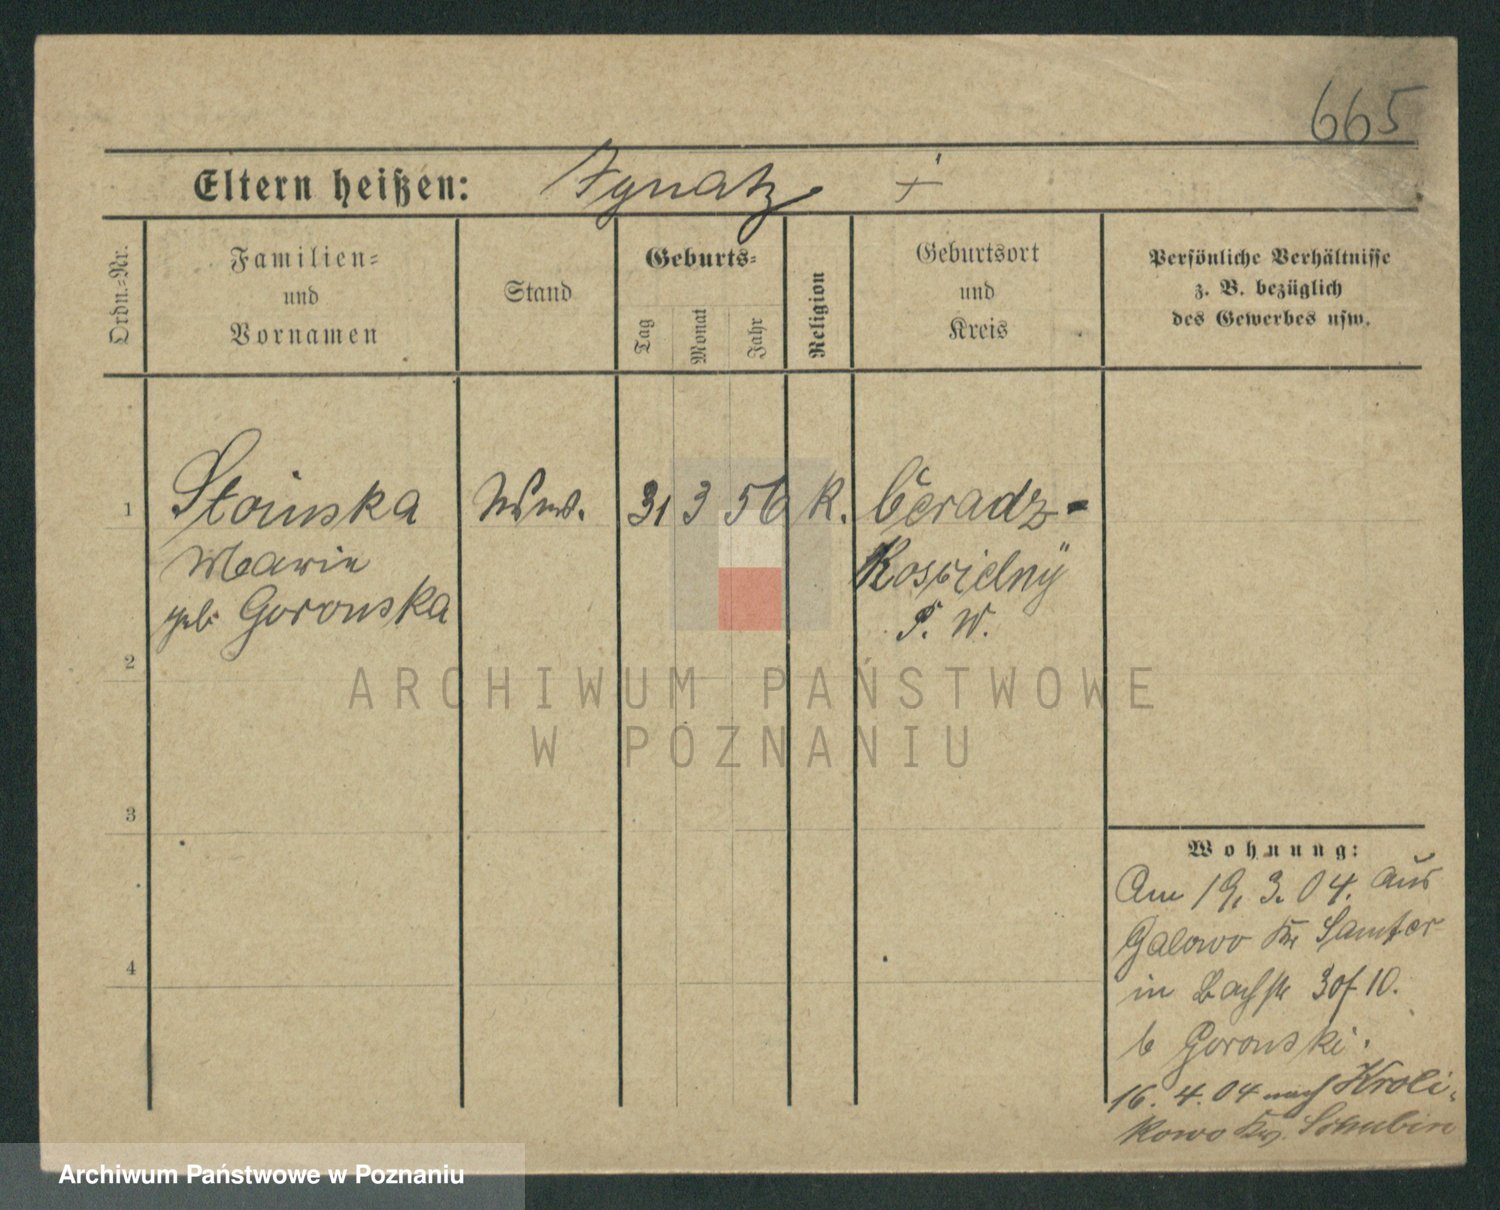 665
Eltern heißen: Ignatz †
Ordn.-Nr.
Familien-
und
Vornamen
Stand
Geburts-
Tag
Monat
Jahr
Religion
Geburtsort
und
Kreis
Persönliche Verhältnisse
z. B. bezüglich
des Gewerbes usw.
1 Stoinska Wwe. 31 3 56 K. Ceradz-
Marie Koscielny
geb Goronska P. W.
2
3
4
ARCHIWUM PAŃSTWOWE
W POZNANIU
Wohnung:
Am 19. 3. 04. aus
Galowo Kr Samter
in Bachstr 30f 10.
b Goronski.
16. 4. 04 nach Kroli-
kowo Kr. Schubin
Archiwum Państwowe w Poznaniu